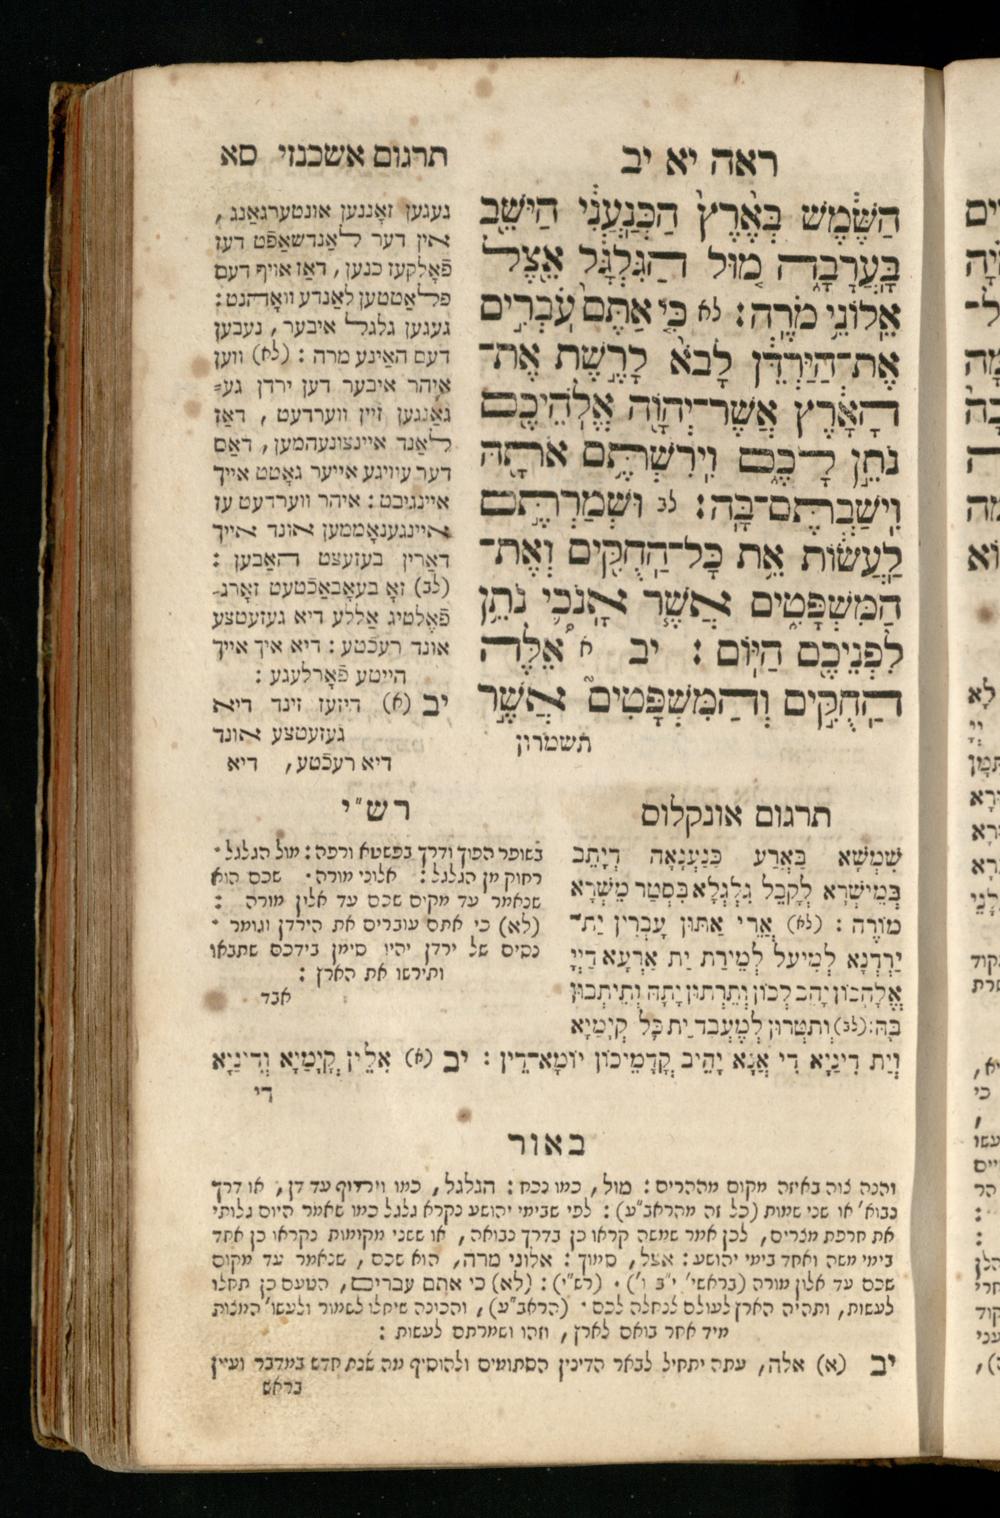 ראה יא יב
תרגום אשכנזי סא
הַשֶּׁ֔מֶשׁ בְּאֶ֙רֶץ֙ הַֽכְּנַעֲנִ֔י הַיֹּשֵׁ֖ב
בָּֽעֲרָבָ֑ה מ֚וּל הַגִּלְגָּ֔ל אֵ֖צֶל
אֵֽלוֹנֵ֥י מֹרֶֽה׃ לא כִּ֤י אַתֶּם֙ עֹֽבְרִ֣ים
אֶת־הַיַּרְדֵּ֔ן לָבֹא֙ לָרֶ֣שֶׁת אֶת־
הָאָ֔רֶץ אֲשֶׁר־יְהוָ֥ה אֱלֹֽהֵיכֶ֖ם
נֹתֵ֣ן לָכֶ֑ם וִֽירִשְׁתֶּ֥ם אֹתָ֖הּ
וִֽישַׁבְתֶּם־בָּֽהּ׃ לב וּשְׁמַרְתֶּ֣ם
לַֽעֲשׂ֔וֹת אֵ֥ת כָּל־הַֽחֻקִּ֖ים וְאֶת־
הַמִּשְׁפָּטִ֑ים אֲשֶׁ֧ר אָֽנֹכִ֛י נֹתֵ֥ן
לִפְנֵיכֶ֖ם הַיּֽוֹם׃ יב א אֵ֠לֶּה
הַֽחֻקִּ֣ים וְהַמִּשְׁפָּטִים֮ אֲשֶׁ֣ר
תשמרון
געגען זאָננען אונטערגאַנג,
אין דער לאַנדשאַפֿט דעז
פֿאָלקעז כנען, דאַז אויף דעם
פלאַטטען לאַנדע וואָהנט:
געגען גלגל איבער, נעבען
דעם האַינע מרה: (לא) ווען
איהר איבער דען ירדן גע=
גאַנגען זיין ווערדעט, דאַז
לאַנד איינצונעהמען, דאַס
דער עוויגע אייער גאָטט אייך
איינגיבט: איהר ווערדעט עז
איינגענאָממען אונד אייך
דאַרין בעזעצט האַבען:
(לב) זאָ בעאָבאַכֿטעט זאָרג־
פֿאֶלטיג אַללע דיא געזעטצע
אונד רעכֿטע: דיא איך אייך
הייטע פֿאָרלעגע:
יב (א) דיזעז זינד דיא
געזעטצע אונד
דיא רעכֿטע, דיא
תרגום אונקלוס
שִׁמְשָׁא בַּאֲרַע כְּנַעֲנָאָה דְיָתֵב
בְּמֵישְׁרָא לָקֳבֵל גִּלְגְּלָא בִּסְטַר מֵשְׁרָא
מוֹרֶה: (לא) אֲרֵי אַתּוּן עָבְרִין יַת־
יַרְדְּנָא לְמֵיעַל לְמֵירַת יַת אַרְעָא דַּיְיָ
אֱלָהֲכוֹן יָהֵב לְכוֹן וְתֵרְתוּן יָתַהּ וְתֵיתְבוּן
בַּהּ: (לב) וְתִטְּרוּן לְמֶעְבַּד יַת כָּל קְיָמַיָּא
וְיַת דִּינַיָּא דִּי אֲנָא יָהֵיב קֳדָמֵיכוֹן יוֹמָא־דֵין: יב (א) אִלֵּין קְיָמַיָּא וְדִינַיָּא
די
רש"י
בשופר הפוך ודרך בפשטא ורפה: מול הגלגל·
רחוק מן הגלגל: אלוני מורה· שכם הוא
שנאמר עד מקום שכם עד אלון מורה:
(לא) כי אתם עוברים את הירדן וגומר·
נסים של ירדן יהיו סימן בידכם שתבאו
ותירשו את הארץ:
אבד
באור
והנה צוה באיזה מקום מההרים: מול, כמו נכח: הגלגל, כמו וירדוף עד דן, או דרך
נבוא' או שני שמות (כל זה מהראב"ע): לפי שבימי יהושע נקרא גלגל כמו שאמר היום גלותי
את חרפת מצרים, לכן אמר שמשה קראו כן בדרך נבואה, או ששני מקומות נקראו כן אחד
בימי משה ואחד בימי יהושע: אצל, סמוך: אלוני מרה, הוא שכם, שנאמר עד מקום
שכם עד אלון מורה (בראשי' י"ב ו')· (רש"י): (לא) כי אתם עברים, הטעם כן תחלו
לעשות, ותהיה הארץ לעולם לנחלה לכם· (הראב"ע), והכונה שיחלו לשמור ולעשו' המצות
מיד אחר בואם לארץ, וזהו ושמרתם לעשות:
יב (א) אלה, עתה יתחיל לבאר הדינין הסתומים ולהוסיף מה שנת חדש במדבר ועיין
בראש